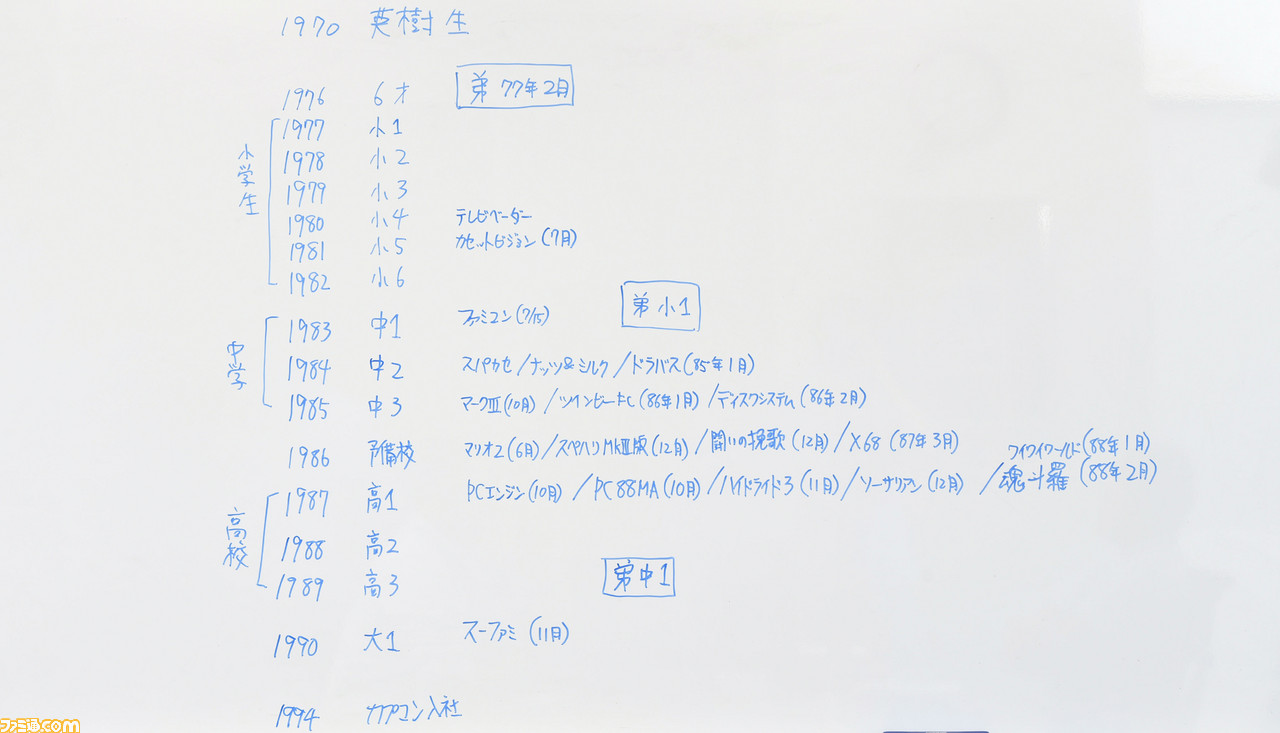 1970 英樹生
1976 6才 弟 77年2月
小学生
1977 小1
1978 小2
1979 小3
1980 小4 テレビベーダー
1981 小5 カセットビジョン(7月)
1982 小6
中学
1983 中1 ファミコン(7/15) 弟 小1
1984 中2 スパカセ/ナッツ&シルク/ドラバス(85年1月)
1985 中3 マークⅢ(10月)/ツインビーFC(86年1月)/ディスクシステム(86年2月)
1986 予備校 マリオ2(6月)/スペハリMKⅢ版(12月)/闘いの挽歌(12月)/X68(87年3月) ワイワイワールド(88年1月)
高校
1987 高1 PCエンジン(10月)/PC88MA(10月)/ハイドライド3(11月)/ソーサリアン(12月)/魂斗羅(88年2月)
1988 高2
1989 高3 弟 中1
1990 大1 スーファミ(11月)
1994 カプコン入社
ファミ通.com